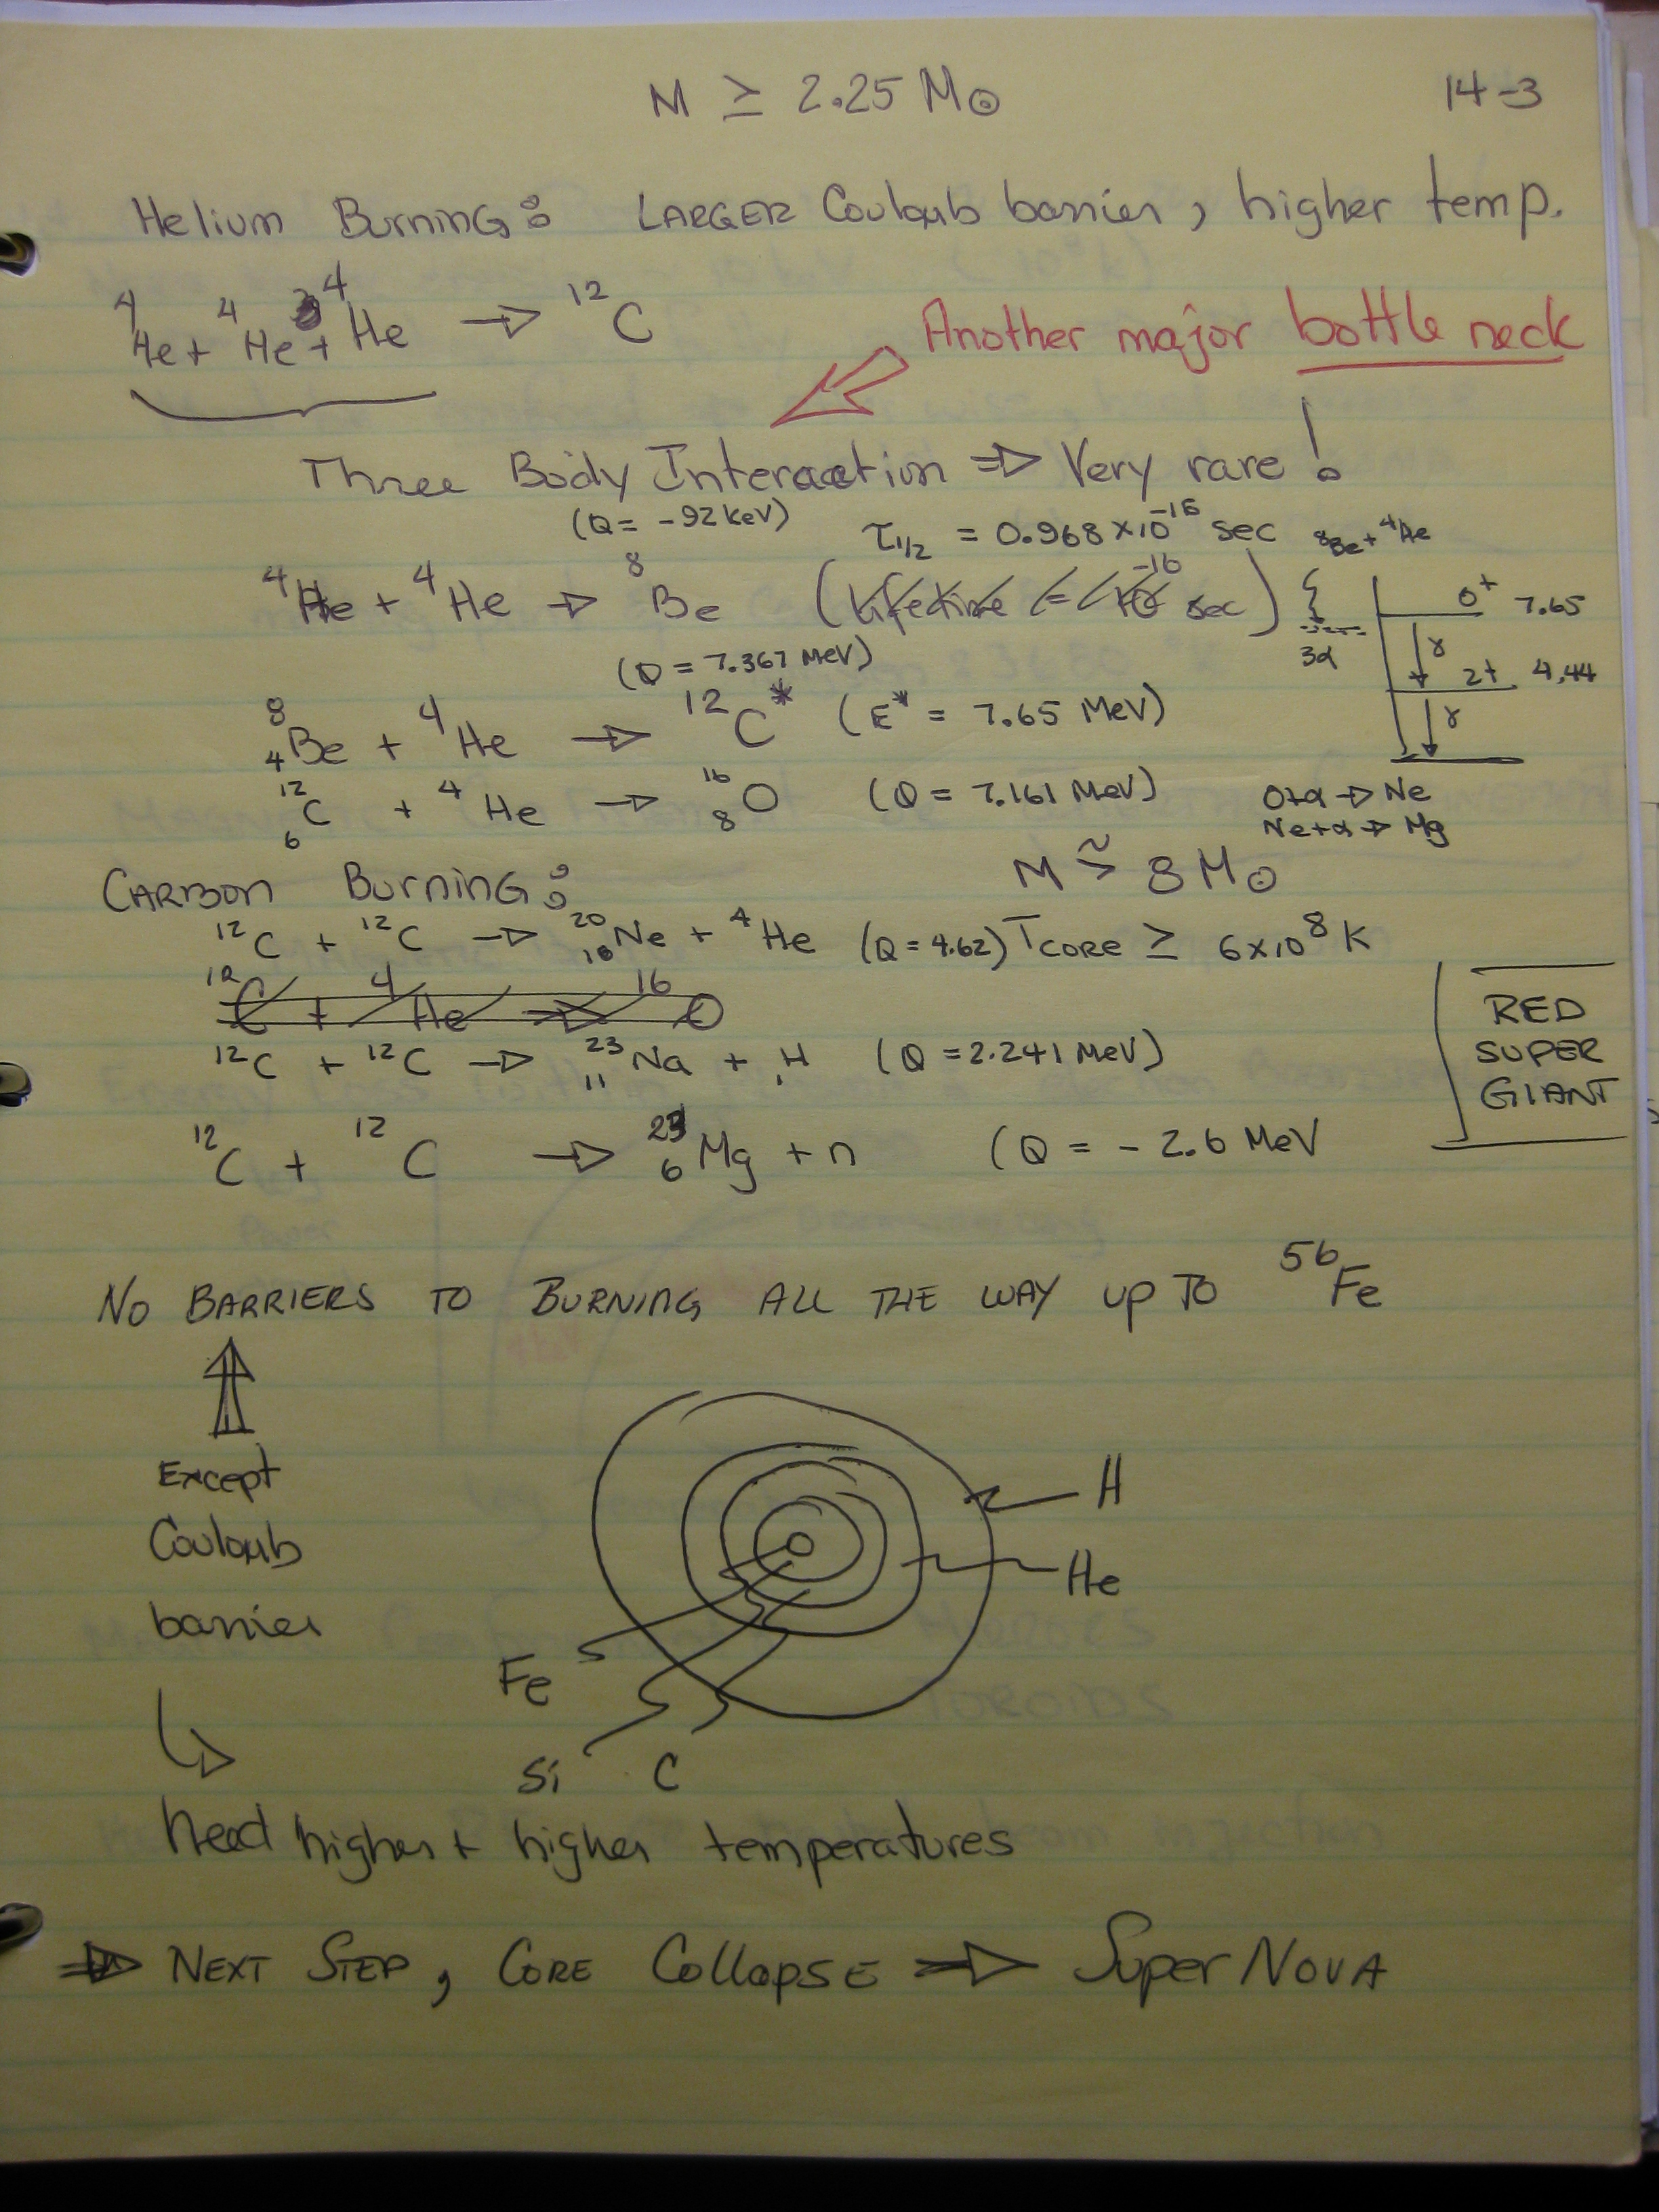 M ≥ 2.25 M⊙
14-3
Helium Burning: LARGER Coulomb barrier, higher temp.
⁴He + ⁴He + ⁴He → ¹²C
Another major bottle neck
Three Body Interaction ⇒ Very rare!
(Q = -92 keV) τ1/2 = 0.968×10⁻¹⁶ sec
⁸Be + ⁴He
⁴He + ⁴He → ⁸Be (lifetime = 10⁻¹⁶ sec)
0⁺ 7.65
3α
γ
2+ 4.44
γ
(Q = 7.367 MeV)
⁸₄Be + ⁴He → ¹²C* (E* = 7.65 MeV)
¹²₆C + ⁴He → ¹⁶₈O (Q = 7.161 MeV)
O+α → Ne
Ne+α → Mg
CARBON BURNING: M ≳ 8 M⊙
¹²C + ¹²C → ²⁰₁₀Ne + ⁴He (Q = 4.62) TCORE ≥ 6×10⁸ K
¹²C + ⁴He → ¹⁶O
¹²C + ¹²C → ²³₁₁Na + ₁H (Q = 2.241 MeV)
RED
SUPER
GIANT
¹²C + ¹²C → ²³₆Mg + n (Q = - 2.6 MeV
NO BARRIERS TO BURNING ALL THE WAY UP TO ⁵⁶Fe
Except
Coulomb
barrier
H
He
Fe
Si C
Need higher + higher temperatures
⇒ NEXT STEP, CORE COLLAPSE ⇒ SuperNOVA